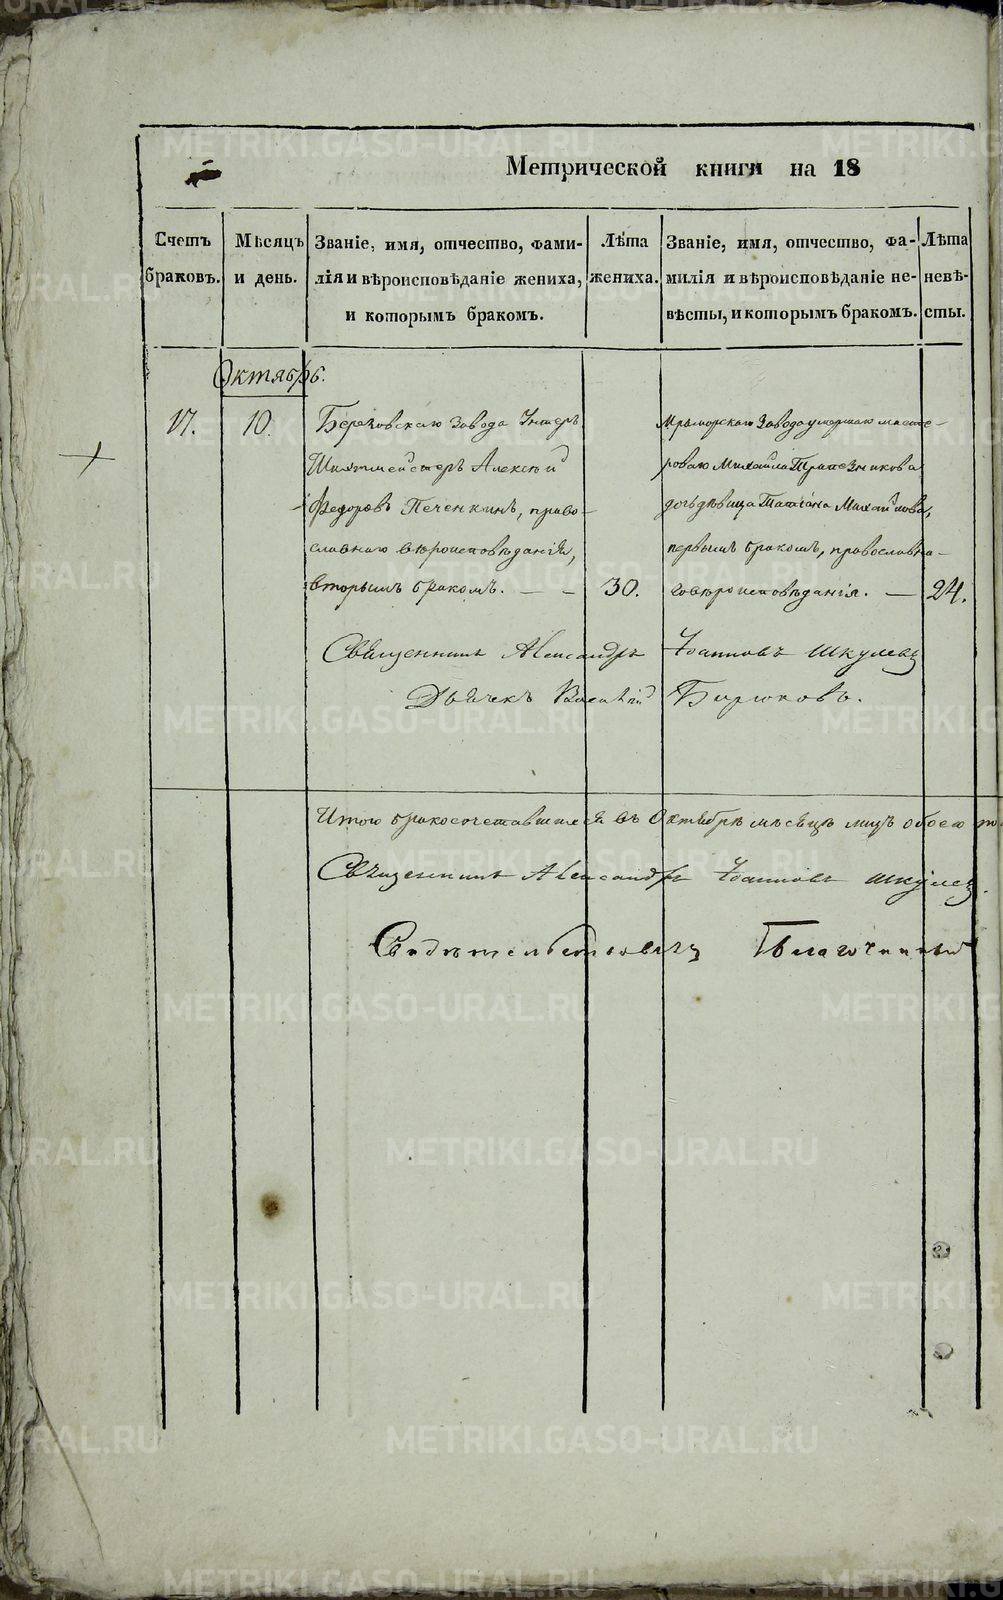 Метрической книги на 18
Счетъ браковъ.
Мѣсяцъ и день.
Званіе, имя, отчество, фами-
лія и вѣроисповѣданіе жениха,
и которымъ бракомъ.
Лѣта жениха.
Званіе, имя, отчество, фа-
милія и вѣроисповѣданіе не-
вѣсты, и которымъ бракомъ.
Лѣта невѣ-
сты.
Октябрь.
17.
10.
Березовскаго Завода Унтеръ
Шихтмейстеръ Алексѣй
Федоровъ Печенкинъ, право-
славнаго вѣроисповѣданія,
вторымъ бракомъ. — —
30.
Мраморскаго Завода умершаго масте-
роваго Михайла Трапезникова
дочь девица Татіана Михайлова,
первымъ бракомъ, православна-
го вѣроисповѣданія. —
24.
Священникъ Александръ Іоанновъ Шкулевъ
Дьячекъ Василій Бирюковъ.
Итого бракосочетавшихся въ Октябрѣ мѣсяцѣ лицъ обоего по
Священникъ Александръ Іоанновъ Шкулев.
Свидѣтельствовалъ Благочинный
METRIKI.GASO-URAL.RU